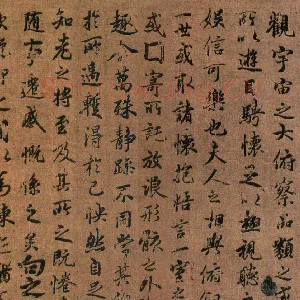 觀宇宙之大俯察品類之
所以遊目騁懷足以極視聽
娛信可樂也夫人之相與俯
一世或取諸懷抱悟言一室
或因寄所託放浪形骸之外
趣舍萬殊靜躁不同當其
於所遇暫得於己快然自足
知老之將至及其所之既惓
隨事遷感慨係之矣向之
以為陳